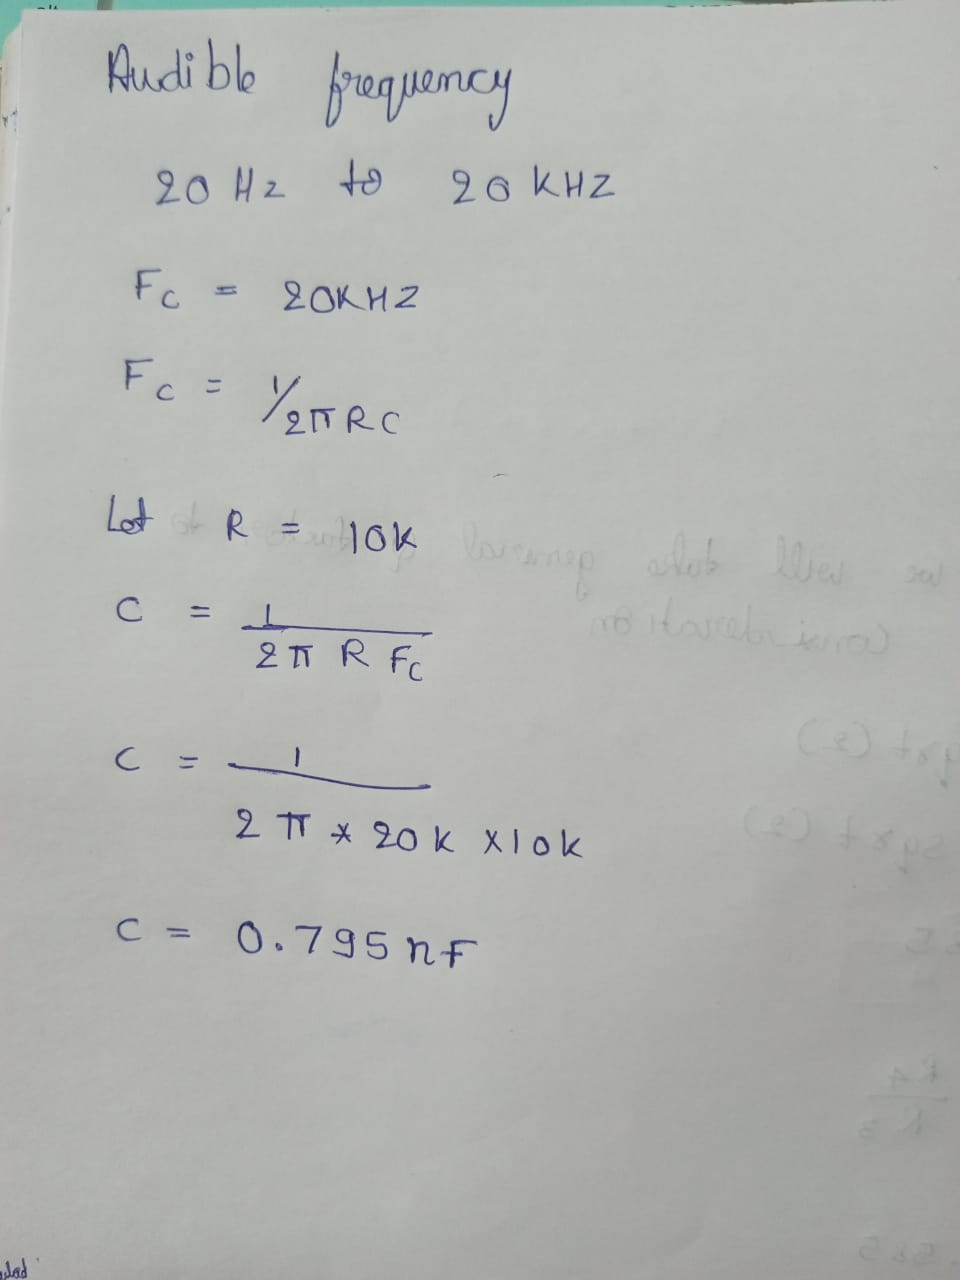 Audible frequency
20 Hz to 20 KHZ
Fc = 20KHZ
Fc = 1/2πRC
Let R = 10K
C = 1
2π R Fc
C = 1
2π * 20K X10K
C = 0.795 nF